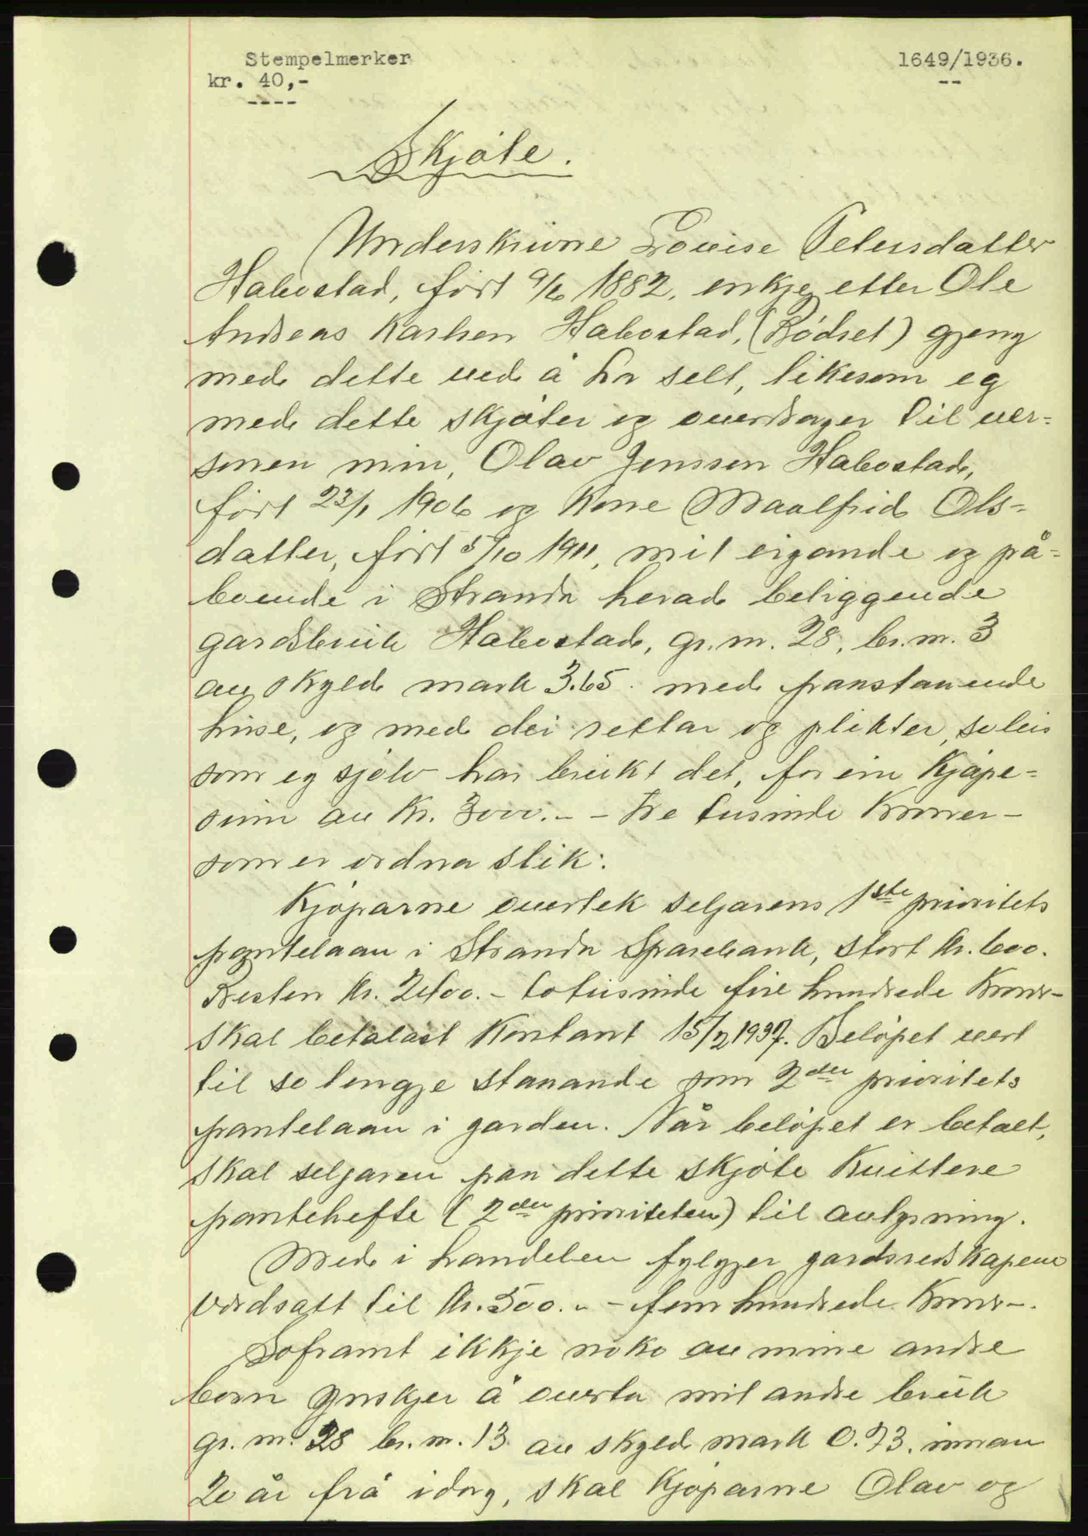 Stempelmerker
kr. 40,-
----
1649/1936.
--
Skjøte.
Underskrivne Lovise Petersdatter
Habostad, født 9/6 1882, enkje etter Ole
Andreas Karlsen Habostad, (Rødset) gjeng
med dette ved å ha selt, likesom eg
med dette skjøter og overdrager til ver=
sonen min, Olav Jenssen Habostad,
født 23/1 1906 og kone Maalfrid Ols=
datter, født 5/10 1911, mit eigande og på=
boende i Stranda herad beliggende
gardsbruk Habostad, gr.n. 28, br.n. 3
av skyld mark 3.65. med paastaaende
huse, og med dei rettar og plikter, soleis
som eg sjølv har brukt det, for ein kjøpe=
sum av kr. 3000.- - Tre tusinde kroner-
som er ordna slik:
Kjøparne overtek seljarens 1ste prioritets
pantelaan i Stranda Sparebank, stort kr. 600.
Resten kr. 2400.- totusinde fire hundrede kroner-
skal betalast kontant 15/2 1937. Beløpet vert
til so lengje staaande som 2den prioritets
pantelaan i garden. Når beløpet er betalt,
skal seljaren paa dette skjøte kvittere
pantehefte (2den prioriteten) til avlysning.
Med i handelen fylgjer gardsredskapene
verdsatt til kr. 500.- - fem hundrede kroner-.
Soframt ikkje noko av mine andre
born ynskjer å overta mit andre bruk
gr.n. 28 br.n. 13 av skyld mark 0.73. innan
20 år frå idag, skal kjøparne Olav og